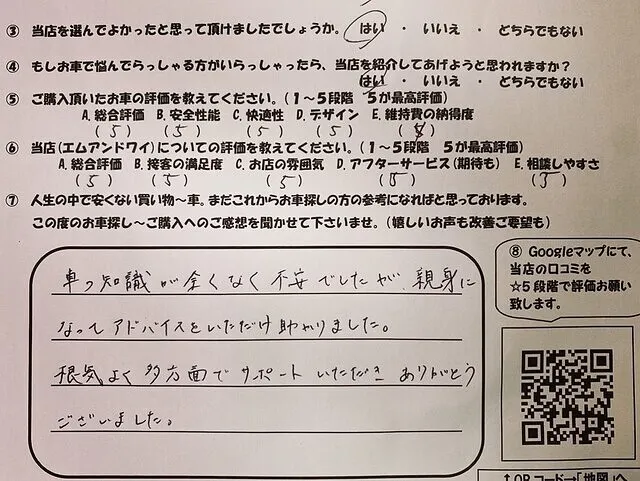 ③ 当店を選んでよかったと思って頂けましたでしょうか。 はい ・ いいえ ・ どちらでもない
④ もしお車で悩んでらっしゃる方がいらっしゃったら、当店を紹介してあげようと思われますか?
はい ・ いいえ ・ どちらでもない
⑤ ご購入頂いたお車の評価を教えてください。(1~5段階 5が最高評価)
A.総合評価 B.安全性能 C.快適性 D.デザイン E.維持費の納得度
(5) (5) (5) (5) ( )
⑥ 当店(エムアンドワイ)についての評価を教えてください。(1~5段階 5が最高評価)
A.総合評価 B.接客の満足度 C.お店の雰囲気 D.アフターサービス(期待も) E.相談しやすさ
(5) (5) (5) (5) (5)
⑦ 人生の中で安くない買い物~車。まだこれからお車探しの方の参考になればと思っております。
この度のお車探し~ご購入へのご感想を聞かせて下さいませ。(嬉しいお声も改善ご要望も)
車の知識が全くなく不安でしたが、親身に
なってアドバイスをいただけ助かりました。
根気よく多方面でサポートいただきありがとう
ございました。
⑧ Googleマップにて、
当店の口コミを
☆5段階で評価お願い
致します。
↑QRコード→「地図」へ